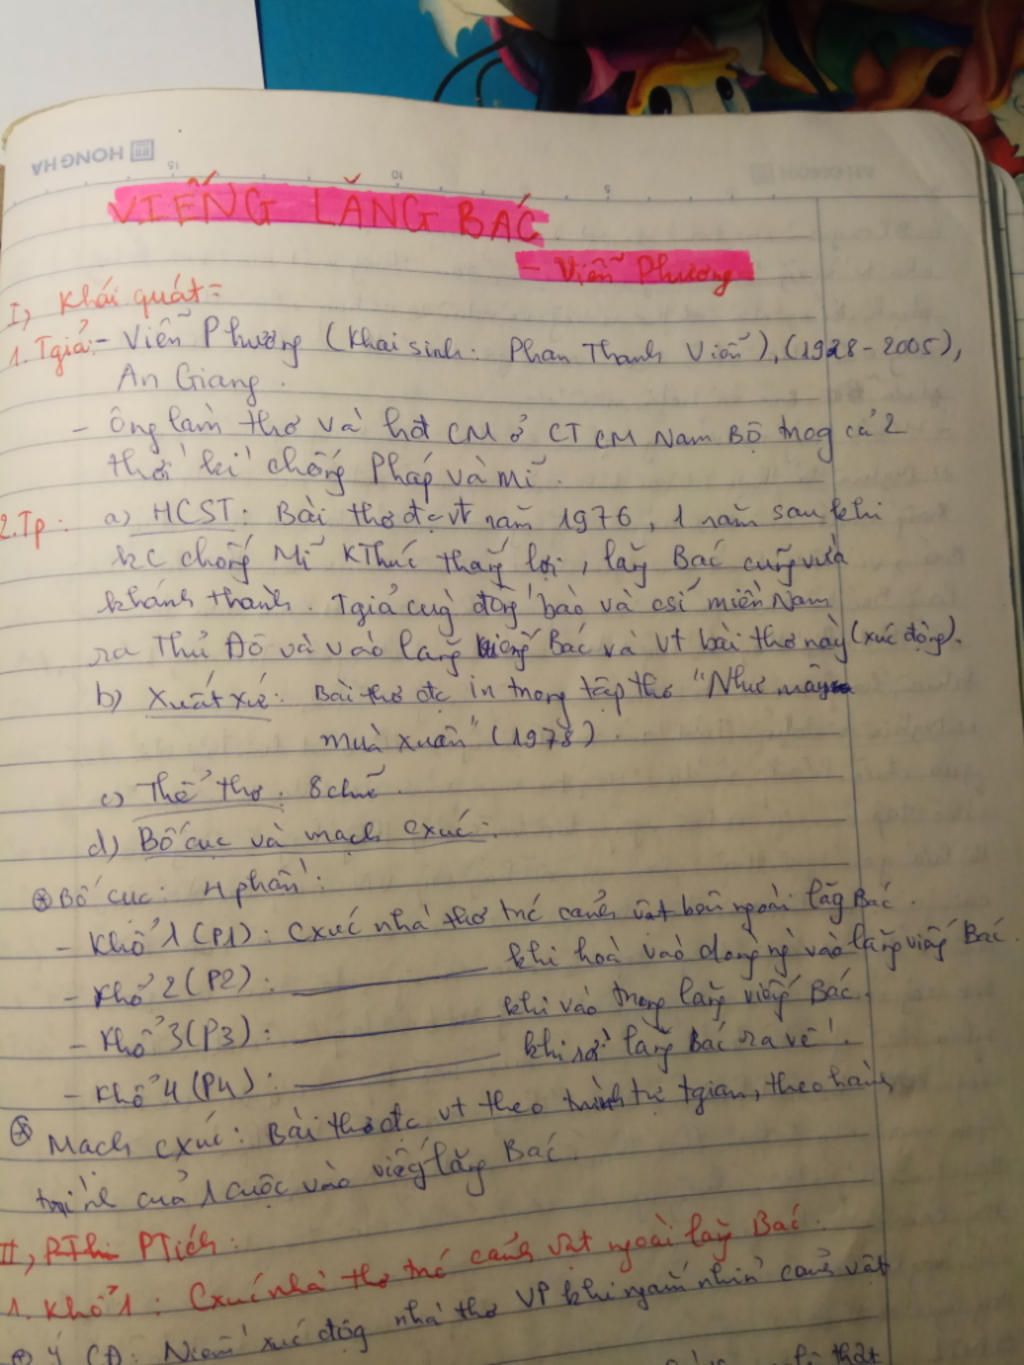 HONG HA
15 10 5
VIẾNG LĂNG BÁC
- Viễn Phương
I, Khái quát:
1. Tgiả: - Viễn Phương (Khai sinh: Phan Thanh Viễn), (1928-2005),
An Giang.
- Ông làm thơ và hđt CM ở CT CM Nam Bộ trog cả 2
thời kì chống Pháp và Mĩ.
2. Tp: a) HCST: Bài thơ đc vt năm 1976, 1 năm sau khi
kc chống Mĩ KThúc thắng lợi, lăng Bác cũng vừa
khánh thành. Tgiả cùg đồng bào và csĩ miền Nam
ra Thủ Đô và vào lăng viếng Bác và vt bài thơ này (xúc động).
b) Xuất xứ: Bài thơ đc in trong tập thơ "Như mây
mùa xuân" (1978).
c) Thể thơ: 8 chữ.
d) Bố cục và mạch cxúc:
⊛ Bố cục: 4 phần:
- Khổ 1 (P1): Cxúc nhà thơ trc cảnh vật bên ngoài lăg Bác.
- Khổ 2 (P2): ——— khi hoà vào dòng ng vào lăng viếng Bác.
- Khổ 3 (P3): ——— khi vào trong lăng viếng Bác.
- Khổ 4 (P4): ——— khi rời lăng Bác ra về.
⊛ Mạch cxúc: Bài thơ đc vt theo trình tự tgian, theo hành
trình của 1 cuộc vào viếg lăng Bác.
II, PTích:
1. Khổ 1: Cxúc nhà thơ trc cảnh vật ngoài lăg Bác.
Ý CĐ: Niềm xúc độg nhà thơ VP khi ngắm nhìn cảnh vật